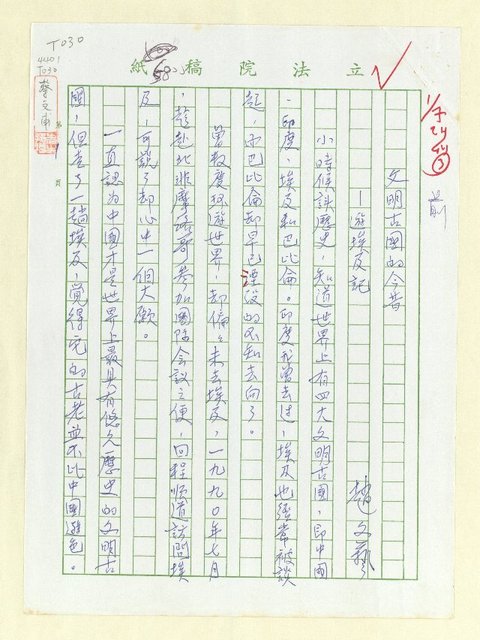 T030
4401
T030
立法院稿紙
58
前
文明古國的今昔
—遊埃及記
趙文藝
小時候讀歷史,知道世界上有四大文明古國,即中國
、印度、埃及和巴比倫。印度我曾去過,埃及也經常被談
起,而巴比倫卻早已湮沒的不知去向了。
曾數度環遊世界,却偏偏未去埃及,一九九〇年七月
,趁赴北非摩洛哥參加國際會議之便,回程順道訪問埃
及,可說了却心中一個大願。
一直認為中國才是世界上最具有悠久歷史的文明古
國,但去了一趟埃及,覺得它的古老並不比中國遜色。
第1頁